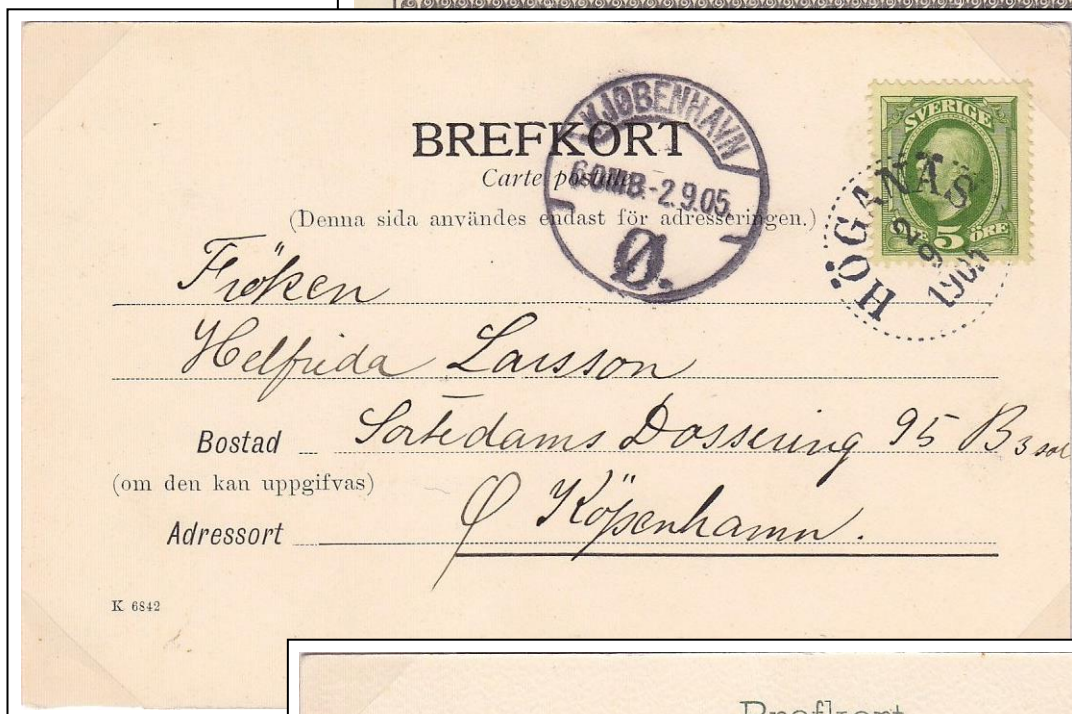 BREFKORT
Carte postale
(Denna sida användes endast för adresseringen.)
KJØBENHAVN
2.9.05
Ø.
SVERIGE
5 ÖRE
HÖGANÄS
2
9
Fröken
Helfrida Larsson
Bostad Sortedams Dossering 95 B 3
(om den kan uppgifvas)
Adressort Ø Köpenhamn.
K 6842
Brefkort